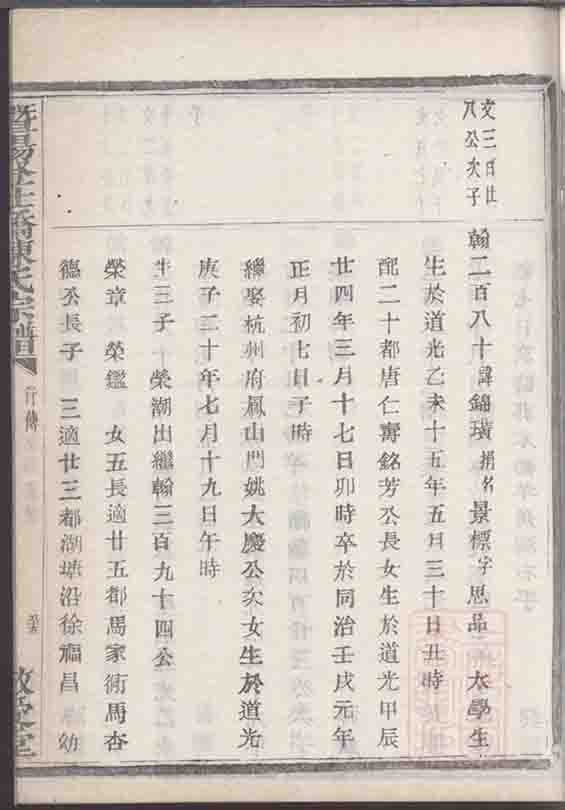 文三百廿
八公次子
翰二百八十諱錦璜捐名景標字思品太學生
生於道光乙未十五年五月三十日丑時
配二十都唐仁壽銘芳公長女生於道光甲辰
廿四年三月十七日卯時卒於同治壬戌元年
正月初七日子時
續娶杭州府鳳山門姚大慶公次女生於道光
庚子二十年七月十九日午時
生三子 榮潮出繼翰三百九十四公
榮章 榮鑑 女五長適廿五都馬家衖馬杏
德公長子 三適廿三都湖塘沿徐福昌 幼
陳氏宗譜
行傳